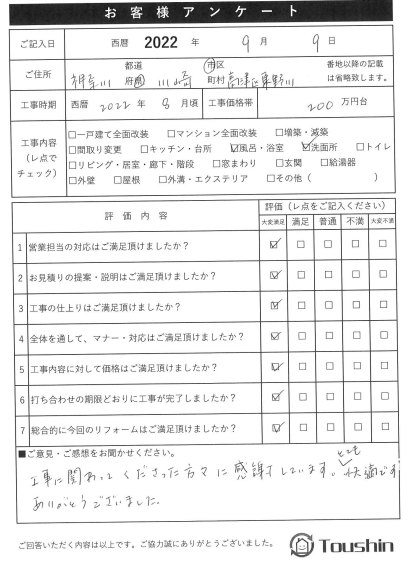 お客様アンケート
ご記入日 西暦 2022 年 9 月 9 日
ご住所 神奈川 都道府県 川崎 市区町村 高津区東野川 番地以降の記載は省略致します。
工事時期 西暦 2022 年 8 月頃 工事価格帯 200 万円台
工事内容（レ点でチェック）
□一戸建て全面改装 □マンション全面改装 □増築・減築
□間取り変更 □キッチン・台所 ☑風呂・浴室 ☑洗面所 □トイレ
□リビング・居室・廊下・階段 □窓まわり □玄関 □給湯器
□外壁 □屋根 □外溝・エクステリア □その他（ ）
評価内容 評価（レ点をご記入ください）
大変満足 満足 普通 不満 大変不満
1 営業担当の対応はご満足頂けましたか？ ☑ □ □ □ □
2 お見積りの提案・説明はご満足頂けましたか？ ☑ □ □ □ □
3 工事の仕上りはご満足頂けましたか？ ☑ □ □ □ □
4 全体を通して、マナー・対応はご満足頂けましたか？ ☑ □ □ □ □
5 工事内容に対して価格はご満足頂けましたか？ ☑ □ □ □ □
6 打ち合わせの期限どおりに工事が完了しましたか？ ☑ □ □ □ □
7 総合的に今回のリフォームはご満足頂けましたか？ ☑ □ □ □ □
■ご意見・ご感想をお聞かせください。
工事に関わってくださった方々に感謝しています。とても快適です
ありがとうございました。
ご回答いただく内容は以上です。ご協力誠にありがとうございました。
Toushin